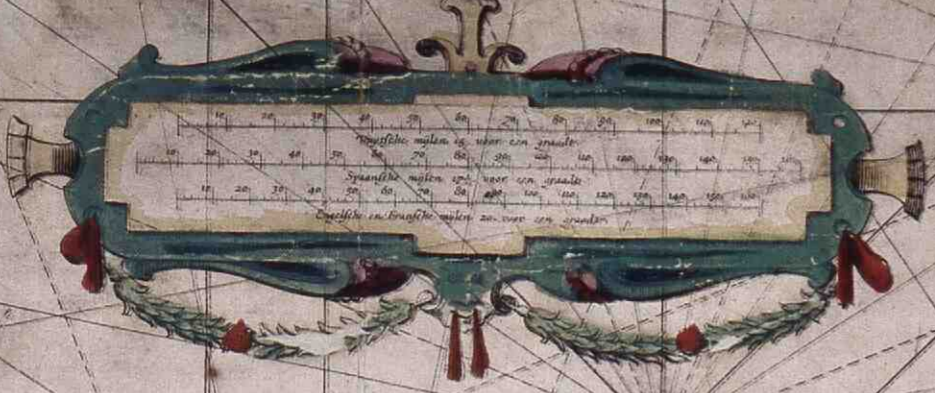 10 20 30 40 50 60 70 80 90 100 110 120
Duytsche mijlen 15 voor een graadt.
10 20 30 40 50 60 70 80 90 110 120 130 140 150
Spaansche mijlen 17½ voor een graadt
10 20 30 40 50 60 70 80 90 100 110 120 130 140 150 160
Engelsche en Fransche mijlen 20 voor een graadt.